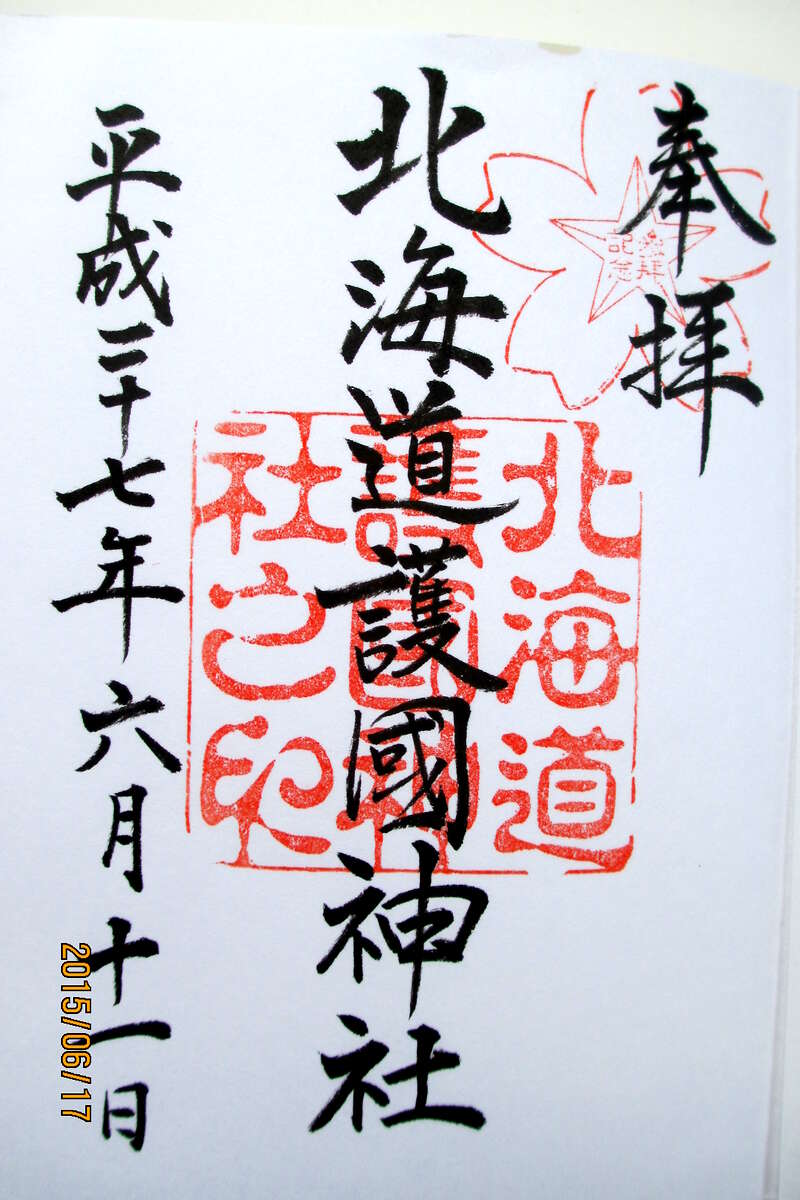 奉拝
参拝
記念
北海道護國神社
北海道
護國神
社之印
平成二十七年六月十一日
2015/06/17